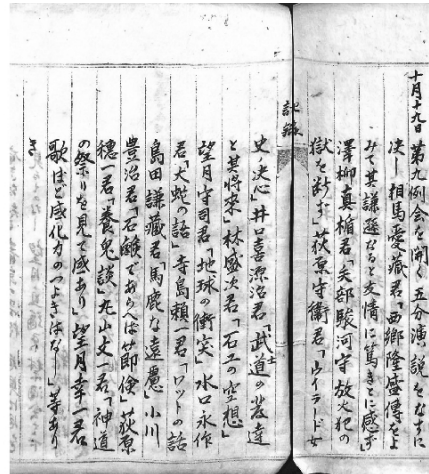 十月十九日 第九例会を開く五分演説をなすに
決し相馬愛蔵君「西郷隆盛傳をよ
みて其謙遜なると友情に篤きとに感ず」
澤柳真楯君「矢部駿河守放火犯の
獄を断ず」荻原守衛君「ウイラード女
記録
史ノ決心」井口喜源治君「武士道の発達
と其将来」林盛次君「石工の空想」
望月守司君「地球の衝突」水口永作
君「大蛇の語」寺島頼一君「ワットの話
島田謙蔵君「馬鹿な遠慮」小川
豊治君「石鹸であらへば節倹」荻原
穂一君「養鬼談」丸山丈一君「神道
の祭りを見て感あり」望月幸一君「
歌ほど感化力のつよきはなし」等あり
き